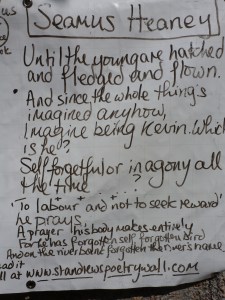 Seamus Heaney
Until the young are hatched
and fledged and flown.
And since the whole thing's
imagined anyhow,
Imagine being Kevin. Which
is he?
Self forgetful or in agony all
the time
'To labour and not to seek reward'
he prays,
A prayer his body makes entirely
For he has forgotten self, forgotten bird
And on the riverbank forgotten the river's name
www.standrewspoetrywall.com